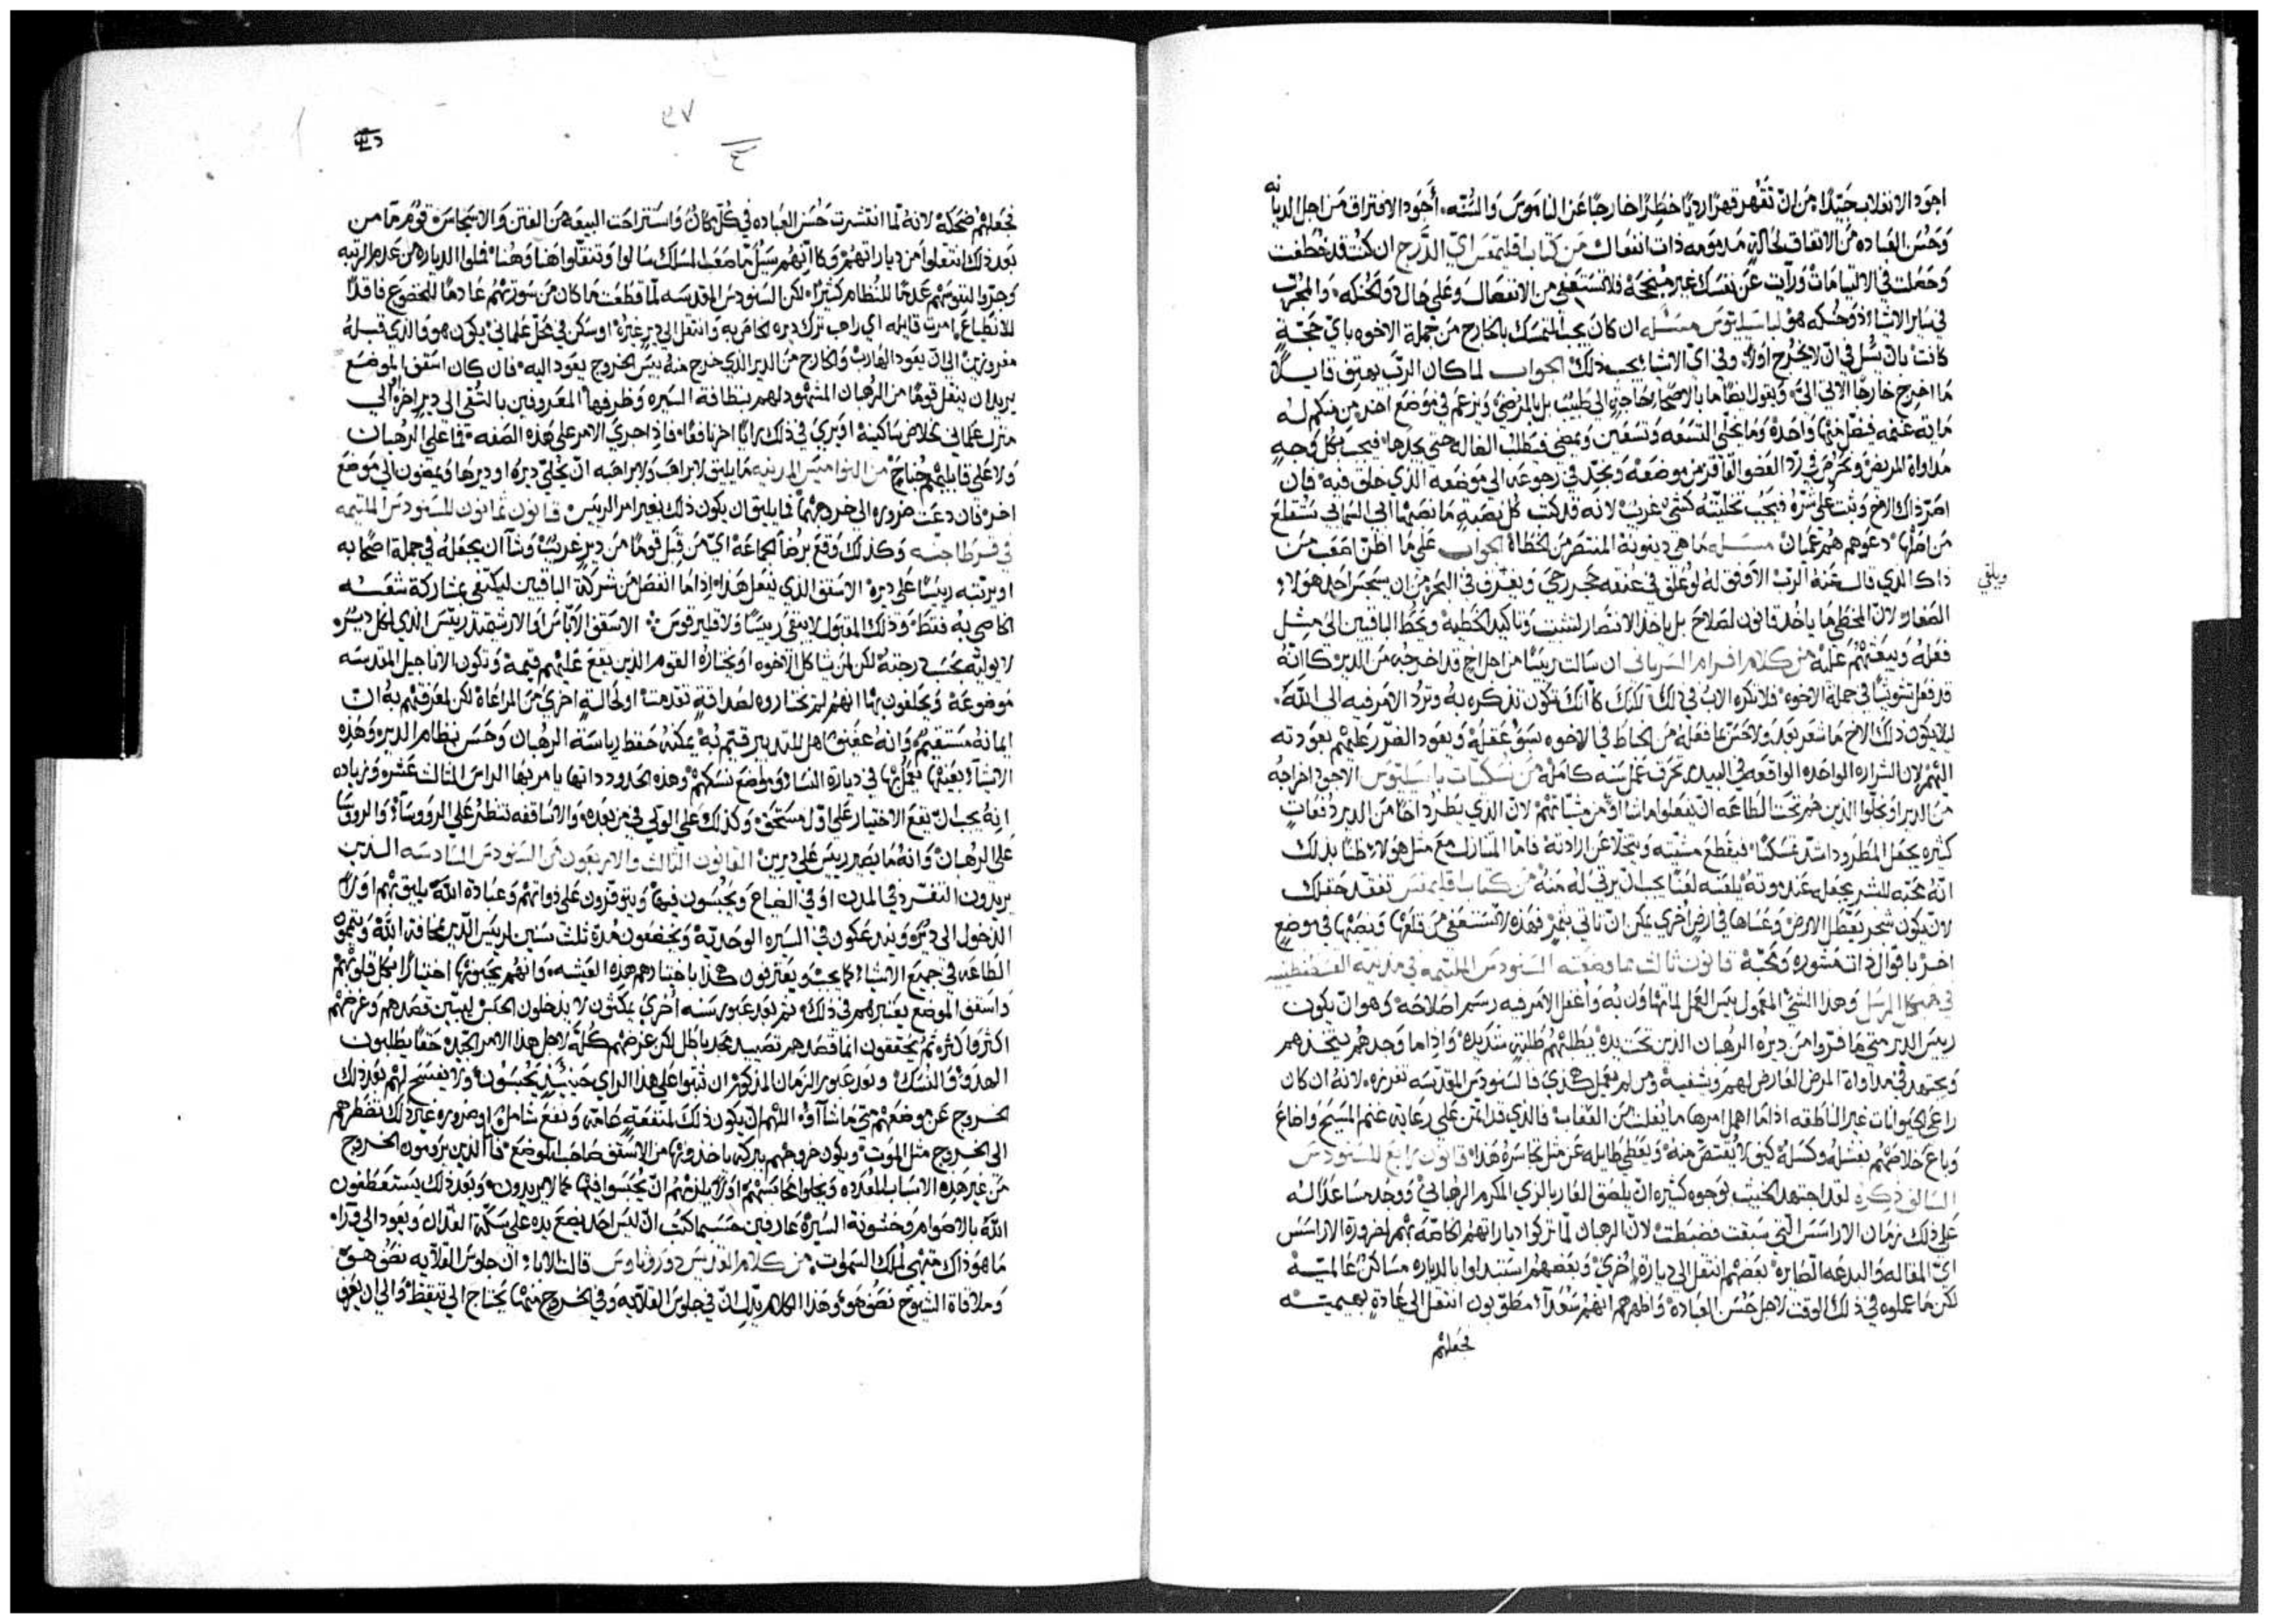 اجود الانغلاب جيدًا من ان نقهر قهرًا رديًا خطرًا خارجًا عن الناموس والسُنّه. أجود الافتراق من اجل الديانه
وحسن العباده من الاتفاق بحالةٍ مذمومه ذات انفعال من كتاب اقليمقس اي الدَّرج ان كنت قد خُطفت
وحصلت في الالتيامات ورأيت عن نفسك غير مُنجحة فلا تستعفي من الانفصال وعلى حال ومحنكه والمجرّب
في ساير الاشياء ذو حُنكه هو لباسيليوس مسئله ان كان يجب التمسك بالخارج من جملة الاخوه باي حجّةٍ
كانت بان نسُل في ان لا يخرج اولًا وفي اي الاشيا يجب ذلك الجواب لما كان الرب يهتف قايلًا
ما اخرج خارجًا الاتي اليّ ويقول ايضًا ما بالاصحا حاجة الى طبيب بل بالمرضى ويزعم في موضع اخر من منكم له
ماية غنمه فيضل منها واحده وما يخلي التسعه وتسعين ويمضي فيطلب الضاله حتى يجدها فيجب بكل وجهٍ
مداواة المريض ونحرص في رد العضو المفارق من موضعه ونجد في رجوعه الى موضعه الذي خلق فيه فان
اصر ذاك الاخ وثبت على شره فيجب تخليته كشيءٍ غريب لانه قد كتب كل نصبةٍ ما نصبها ابي السمائي تستقلع
من اصلها دعوهم هُم عميان مسئله ما هي دينونة المنتصر من الخطاة الجواب على ما اظن اصعب من
ذاك الذي قال عنه الرب الاوفق له لو علق في عنقه حجر رحى ويغرق في البحر من ان يسجس احد هولاء
الصغار لان المخطي ما ياخد قانون لصلاح بل ياخد الانتصار لتثبت وتاكيد الخطية ويحط الباقين الى مثل
فعله ويبعثهم عليه من كلام افرام السرياني ان سالت ريسًا من اجل اخٍ قد اخرجه من الدير كانّهُ
قد فعل تشويشًا في جملة الاخوه فلا تكره الاب في ذلك لكنك كانك تكون تذكره به وترد الامر فيه الى الله.
ليلا يكون ذلك الاخ ما شعر بعد ولا حس بما فعله من انحاط في الاخوه بسو عقله ويعود الضرر عليهم بعودته
اليهم لان الشراره الواحده الواقعه في البيدر تحرق عمل سنه كامله من نسكيات باسيليوس الاجود اخراجُه
من الدير او يخلوا الذين هم تحت الطاعه ان يفعلوا ماشاوا من مشياتهم لان الذي يطرد اخًا من الدير دفعات
كثيره يجعل المطرود اشد تمسكنًا فيقطع مشيته ويتخلا عن ارادته فاما المتنازل مع مثل هولاء ظنًا بذلك
انه محبّه للبشر يجعله عند موته يلعنه لعنًا يجب ان يرثي له منه من كتاب اقليمقس تفقد حقلك
لان يكون شجر يعطل الارض وعساها في ارضٍ اخرى يمكن ان تاتي بثمرٍ فهذه لا تستعفي من قلعها ونصبها في موضعٍ
اخر باقوال ذات مشوره ومحبّة قانون ثالث مما وضعته السنودس الملتيمه في مدينة القسطنطينيه
في هيكل الرسل وهذا الشيء المعمول بيس العمل لما تهاون به وأُغفل الامر فيه رسم اصلاحه وهو ان يكون
ريس الدير متى ما فرّوا من ديره الرهبان الذين تحت يده يطلبهم طلبةٍ شديده واذا ما وجدهم يتخذهم
ويجتهد في مداواة المرض العارض لهم ويشفيه ومن لم يعمل هكذي فالسنودس المقدسه تفرزه لانه ان كان
راعي الحيوانات غير الناطقه اذا ما اهمل امرها ما يفلت من العقاب فالذي قد ايتمن على رعاية غنم المسيح واضاع
وباع خلاصهم بفشله وكسله كيف لا يُقتص منه ويعطي طايله عن مثل تجاسره هذا قانون رابع للسنودس
السالف ذكره لقد اجتهد الخبيث بوجوه كثيره ان يلصق العار بالزي المكرم الرهباني ووجد مساعدًا له
على ذلك زمان الاراسس التي سبقت فضبطت لان الرهبان لما تركوا دياراتهم الخاصّه بهم لضرورة الاراسس
اي المقاله والبدعه الصايره بعضهم انتقل الى ديارةٍ اخرى وبعضهم استبدلوا بالدياره مساكن عالميه
لكن ما عملوه في ذلك الوقت لاجل حُسن العباده واظهرهم انهم سُعدآء مطوّبون انتقل الى عادةٍ بهيميه
ويلقي
فجعلهم
٣٧
فجعلهم ضحكه لانه لما انتشرت حُسن العباده في كل مكان واستراحت البيعه من الفتن والاسجاس قومٌ ما من
بعد ذلك انتقلوا من دياراتهم وكانهم سيلٌ ما صعب المسلك سالوا وتنقلوا هنا وهُنا فملوا الدياره من عدم الرتبه
وجرّوا لنفوسهم عدمًا للنظام كثيرًا لكن السنودس المقدسه لما قطعت ما كان من سورتهم عادمًا للخضوع فاقدًا
للانطياع امرت قايله اي راهب ترك ديره الخاص به وانتقل الى ديرٍ غيره او سكن في محلٍ علماني يكون هو والذي قبلهُ
مفروزين الى ان يعود الهارب والخارج من الدير الذي خرج منه بيس الخروج يعود اليه فان كان اسقف الموضع
يريد ان ينقل قومًا من الرهبان المشهود لهم بنظافة السيره وظرفها المعروفين بالتُقى الى ديرٍ اخر او الى
منزل علماني لخلاص ساكنيه او يرى في ذلك رايًا اخر نافعًا فاذ احري الامر على هذه الصفه فما على الرهبان
ولا على قابليهم جُناحٌ من النواميس المدينيه ما يليق لراهب ولا لراهبه ان يخلّي ديره او ديرها ويمضون الى موضع
اخر فان دعت ضروره الى خروجهم فما يليق ان يكون ذلك بغير امر الريس قانون ثمانون للسنودس الملتيمه
في قرطاجنه وكذلك وقع برضا الجماعه اي من قبل قومًا من ديرٍ غريبٍ وشآ ان يجعله في جملة اصحابه
او يرتبه ريسًا على ديره الاسقف الذي يفعل هذا اذا ما انفصل من شركة الباقين ليكتفي بمشاركة شعبه
الخاص به فقط وذلك المقبول لا يبقى ريسًا ولا قليرقوس الاسقف الاناس او الارشمندريتس الذي لكل ديرٍ
لا يوليه بحسب درجته لكن لمن يشا كل الاخوه او يختاره القوم الذين يقع عليهم قيمة وتكون الاناجيل المقدسه
موضوعةً ويحلفون بها انهم لم يختاروه لصداقةٍ تقدمت او لحالةٍ اخرى من المراعاة لكن لمعرفتهم به ان
امانة مستقيمه وانه عفيف اهل للتدبير قيم به يمكنه حفظ رياسة الرهبان وحسن نظام الدير وهذه
الاشيآء بعينها يعمل بها في ديارة النساء ومواضع نسكهم وهذه الحدود ذاتها يامر بها الراس الثالث عشر وزياده
انه يجب ان يقع الاختيار على اول مستحق وكذلك على التوالي في من بعده والاساقفه تنظر على الروسآء والروسا
على الرهبان وانه ما يصير ريس على ديرين القانون الثالث والاربعون من السنودس السادسه الذين
يريدون التفرد في المدن او في الضياع ويحبسون فيها ويتوفرون على ذواتهم وعبادة الله يليق بهم اولًا
الدخول الى ديرٍ ويندعكون في السيره الوحديّة ويخضعون مدة ثلث سنين لريس الدير بمخافة الله ويتمموا
الطاعه في جميع الاشياء كما يجب ويعترفون هكذا باختيارهم هذه العيشه وانهم يحبونها اختيارًا بكل قلوبهم
واسقف الموضع يعتبرهم في ذلك ثم بعد عبور سنه اخرى يمكثون لا يدخلون الحبس ليبين قصدهم وغرضهم
اكثر واكثر ثم يحققون انما قصدهم تصييد مجد باطل لكن غرضهم كله لاجل هذا الامر الجيد حقًا يطلبون
الهدو والنسك وبعد عبور الزمان المذكور ان ثبتوا على هذا الراي حينيذٍ يحبسون ولا يفسح لهم بعد ذلك
الخروج عن موضعهم متى ما شاآوه اللهم الا ان يكون ذلك لمنفعةٍ عامه ونفع شامل او ضروره غير ذلك تضطرهم
الى الخروج مثل الموت ويكون خروجهم ببركه ياخذونها من الاسقف صاحب الموضع فاما الذين يرومون الخروج
من غير هذه الاسباب المعدوده ويخلوا محابسهم اولًا يلزمهم ان يُحبسوا فيها كما لا يريدون وبعد ذلك يستعطفون
الله بالاصوام وخشونة السيره عارفين حسبما كتب ان ليس احد يضع يده على سكّة الفدان ويعود الى ورآه
ما هو ذاك متهي لملك السموات. من كلام القديس دوروثاوس قالت الابآء ان جلوس القلايه نصف هو
وملاقاة الشيوخ نصف هو وهذا الكلام يدل ان في جلوس القلايه وفي الخروج منها يحتاج الى تيقظ والى ان يعرف